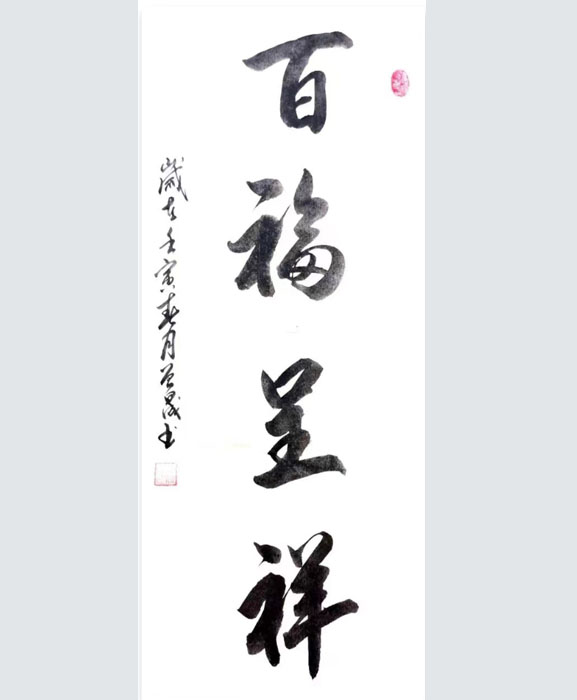 百福呈祥
歲在壬寅春月